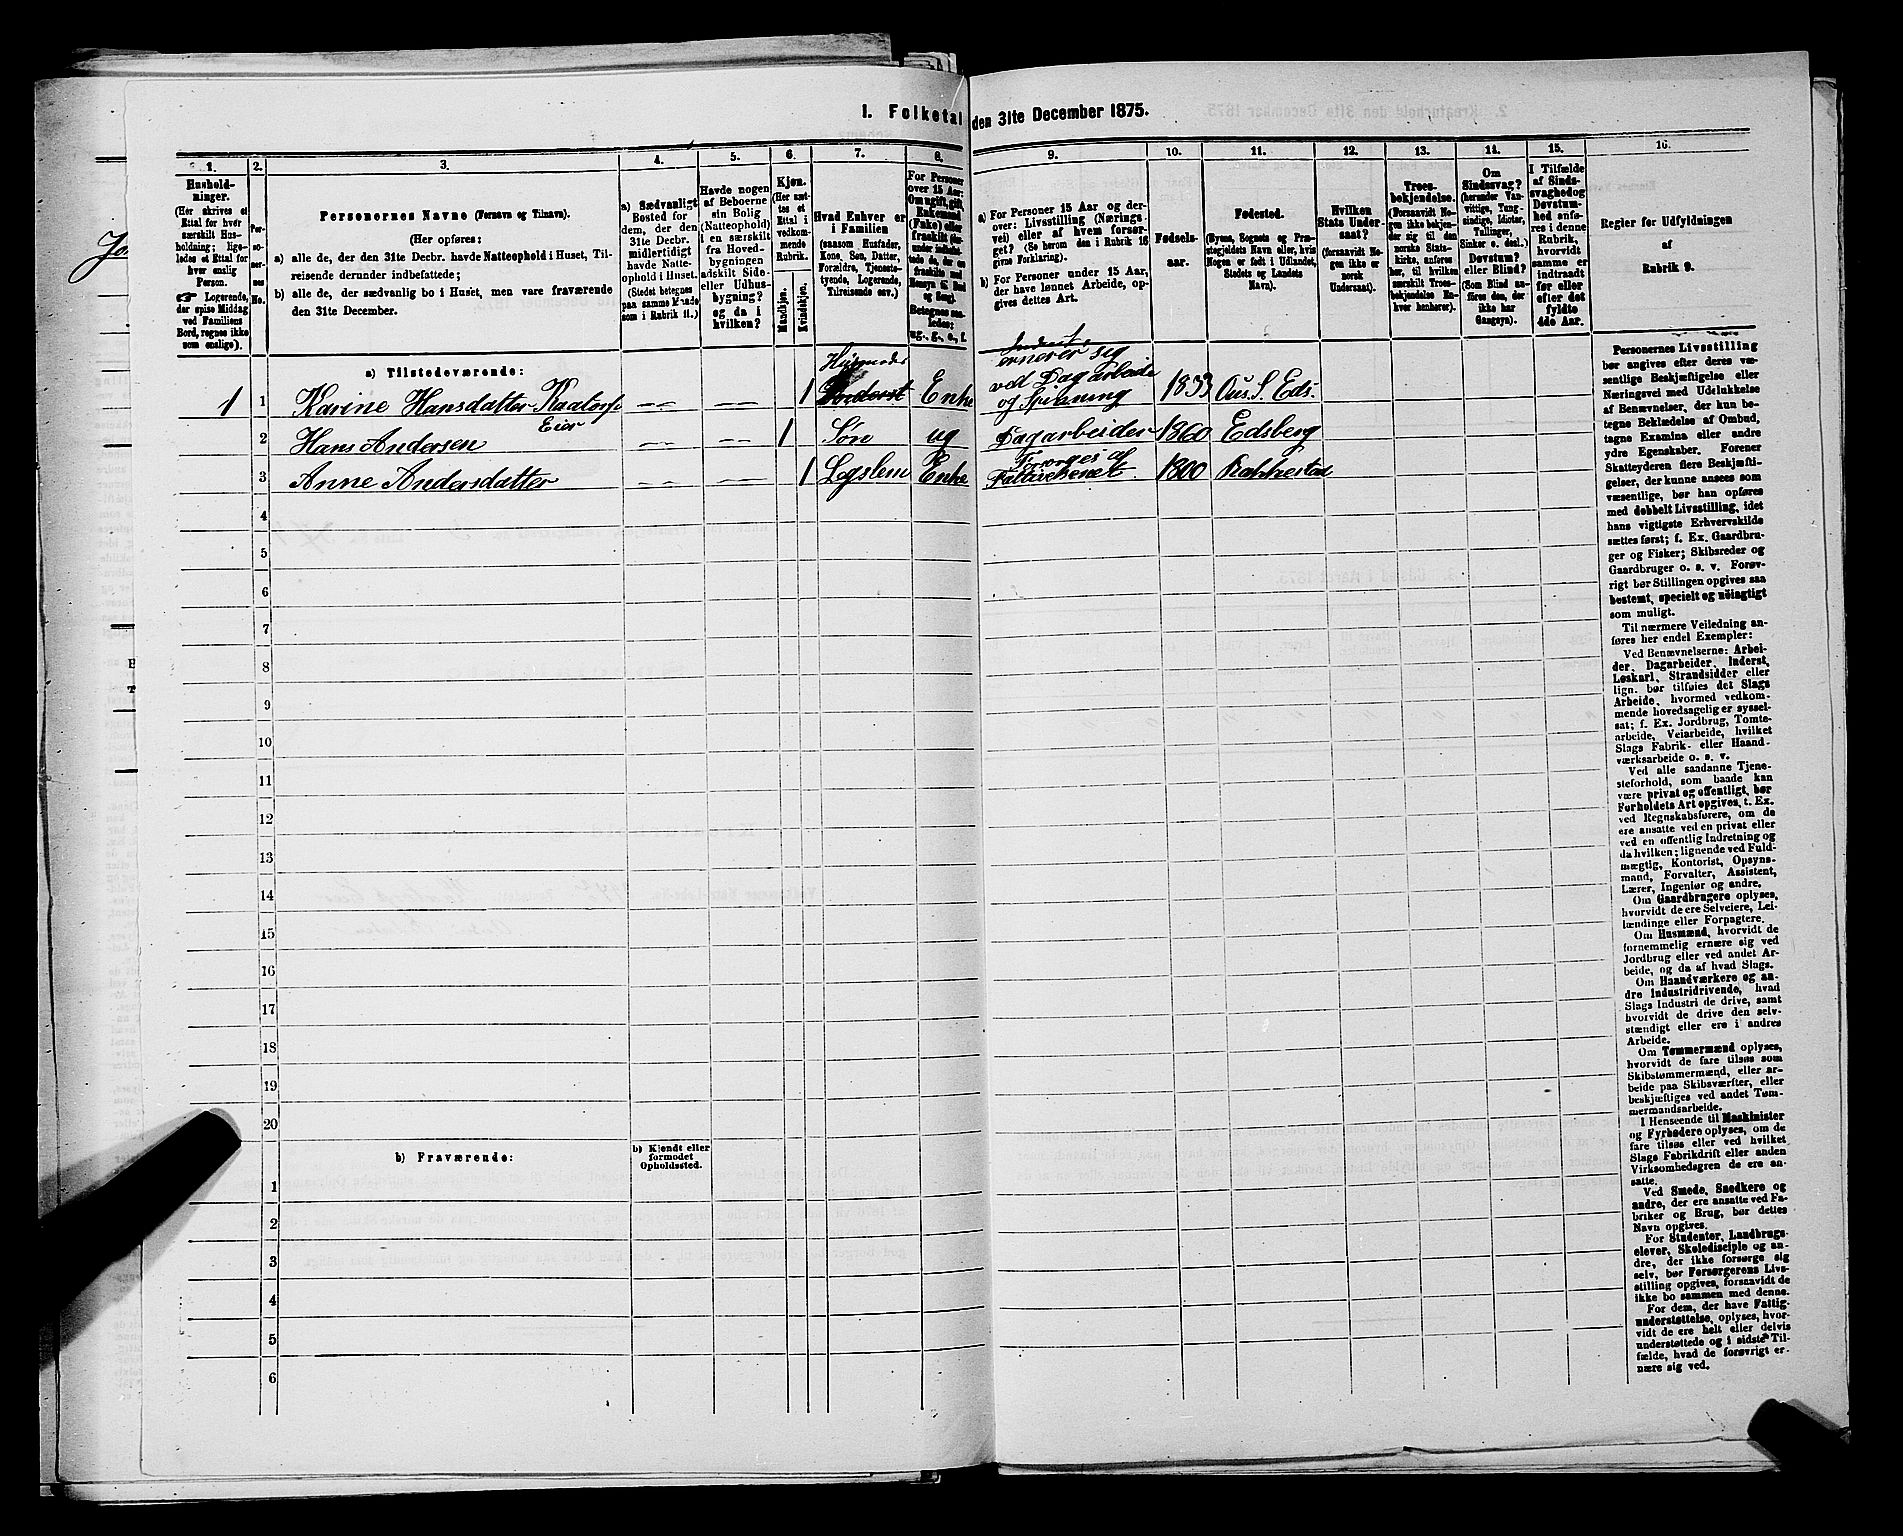 1. Folketal den 31te December 1875.
1. 2. 3. 4. 5. 6. 7. 8. 9. 10. 11. 12. 13. 14. 15. 16.
Hushold-
ninger.
(Her skrives et
Ettal for hver
særskilt Hus-
holdning; lige-
ledes et Ettal for
hver enslig
Person.
☛ Logerende,
der spise Middag
ved Familiens
Bord, regnes ikke
som enslige).
Per-
so-
ner-
nes
No.
Personernes Navne (Fornavn og Tilnavn).
(Her opføres:
a) alle de, der den 31te Decbr. havde Natteophold i Huset, Til-
reisende derunder indbefattede;
b) alle de, der sædvanlig bo i Huset, men vare fraværende
den 31te December.
a) Sædvanligt
Bosted for
dem, der den
31te Decbr.
midlertidigt
havde Natte-
ophold i Huset.
(Stedet betegnes
paa samme Maade
som i Rubrik 11.)
Havde nogen
af Beboerne
sin Bolig
(Natteophold)
i en særskilt
fra Hoved-
bygningen
adskilt Side-
eller Udhus-
bygning?
og da i
hvilken?
Kjøn.
(Her sæt-
tes et
Ettal i
vedkom-
mende
Rubrik.
Mandkjøn.
Kvindekjøn.
Hvad Enhver er
i Familien
(saasom Husfader,
Kone, Søn, Datter,
Forældre, Tjeneste-
tyende, Logerende,
Tilreisende osv.)
For Personer
over 15 Aar:
Om ugift, gift,
Enkemand
(Enke) eller
fraskilt
Betegnes saa-
ledes:
ug., g., e., f.
a) For Personer 15 Aar og der-
over: Livsstilling (Nærings-
vei) eller af hvem forsør-
get? (Se herom den i Rubrik 16
givne Forklaring).
b) For Personer under 15 Aar,
der have lønnet Arbeide, op-
gives dettes Art.
Fødsels-
aar.
Fødested.
(Byens, Sognets og Præ-
stegjeldets Navn eller, hvis
Nogen er født i Udlandet,
Stedets og Landets
Navn).
Hvilken
Stats Under-
saat?
(forsaavidt No-
gen ikke er
norsk
Undersaat).
Troes-
bekjendelse.
(Forsaavidt No-
gen ikke bekjen-
der sig til den
norske Stats-
kirke, anføres
her, til hvilken
særskilt Troes-
bekjendelse En-
hver henhører).
Om
Sindssvag?
(herunder Van-
vittige, Tung-
sindige, Idioter,
Tullinger,
Sinker o. desl.)
Døvstum?
eller Blind?
(Som Blind an-
føres den, der
ikke har
Gangsyn).
I Tilfælde
af Sinds-
svaghed og
Døvstum-
hed anfø-
res i denne
Rubrik,
hvorvidt
samme er
indtraadt
før eller
efter det
fyldte
4de Aar.
Regler for Udfyldningen
af
Rubrik 9.
a) Tilstedeværende:
1 1 Karine Hansdatter Kaatorp Eier — — — — 1 Husmoder Enke ernerer sig ved Dagarbeide og Spinning 1833 Ous. S. Eds.
2 Hans Andersen — — — — 1 Søn ug Dagarbeider 1860 Edsberg
3 Anne Andersdatter — — — — 1 Legslem Enke Forsørges af Fattivæsenet 1800 Rakkestad
4
5
6
7
8
9
10
11
12
13
14
15
16
17
18
19
20
b) Fraværende:
b) Kjendt eller
formodet
Opholdssted.
1
2
3
4
5
6
Personernes Livsstilling
bør angives efter deres væ-
sentlige Beskjæftigelse eller
Næringsvei med Udelukkelse
af Benævnelser, der kun be-
tegne Beklædelse af Ombud,
tagne Examina eller andre
ydre Egenskaber. Forener
Skatteyderen flere Beskjæfti-
gelser, der kunne ansees som
væsentlige, bør han opføres
med dobbelt Livsstilling, idet
hans vigtigste Erhvervskilde
sættes først; f. Ex. Gaardbru-
ger og Fisker; Skibsreder og
Gaardbruger o. s. v. Forøv-
rigt bør Stillingen opgives saa
bestemt, specielt og nöiagtigt
som muligt.
Til nærmere Veiledning an-
føres her endel Exempler:
Ved Benævnelserne: Arbei-
der, Dagarbeider, Inderst,
Løskarl, Strandsidder eller
lign. bør tilføies det Slags
Arbeide, hvormed vedkom-
mende hovedsagelig er syssel-
sat; f. Ex. Jordbrug, Tomte-
arbeide, Veiarbeide, hvilket
Slags Fabrik- eller Haand-
værksarbeide o. s. v.
Ved alle saadanne Tjene-
steforhold, som baade kan
være privat og offentligt, bør
Forholdets Art opgives, t. Ex.
ved Regnskabsførere, om de
ere ansatte ved en privat eller
ved en offentlig Indretning og
da hvilken; lignende ved Fuld-
mægtig, Kontorist, Opsyns-
mand, Forvalter, Assistent,
Lærer, Ingeniør og andre.
Om Gaardbrugere oplyses,
hvorvidt de ere Selveiere, Lei-
lændinge eller Forpagtere.
Om Husmænd, hvorvidt de
fornemmelig ernære sig ved
Jordbrug eller ved andet Ar-
beide, og da af hvad Slags.
Om Haandværkere og an-
dre Industridrivende, hvad
Slags Industri de drive, samt
hvorvidt de drive den selv-
stændigt eller ere i andres
Arbeide.
Om Tømmermænd oplyses,
hvorvidt de fare tilsøs som
Skibstømmermænd, eller ar-
beide paa Skibsværfter, eller
beskjæftiges ved andet Tøm-
mermandsarbeide.
I Henseende til Maskinister
og Fyrbødere oplyses, om de
fare tilsøs eller ved hvilket
Slags Fabrikdrift eller anden
Virksomhedsgren de ere an-
satte.
Ved Smede, Snedkere og
andre, der ere ansatte ved Fa-
briker og Brug, bør dettes
Navn opgives.
For Studenter, Landbrugs-
elever, Skoledisciple og an-
dre, der ikke forsørge sig
selv, bør Forsørgerens Livs-
stilling opgives, forsaavidt de
ikke bo sammen med denne.
For dem, der have Fattig-
understøttelse, oplyses, hvor-
vidt de ere helt eller delvis
understøttede og i sidste Til-
fælde, hvad de forøvrigt er-
nære sig ved.